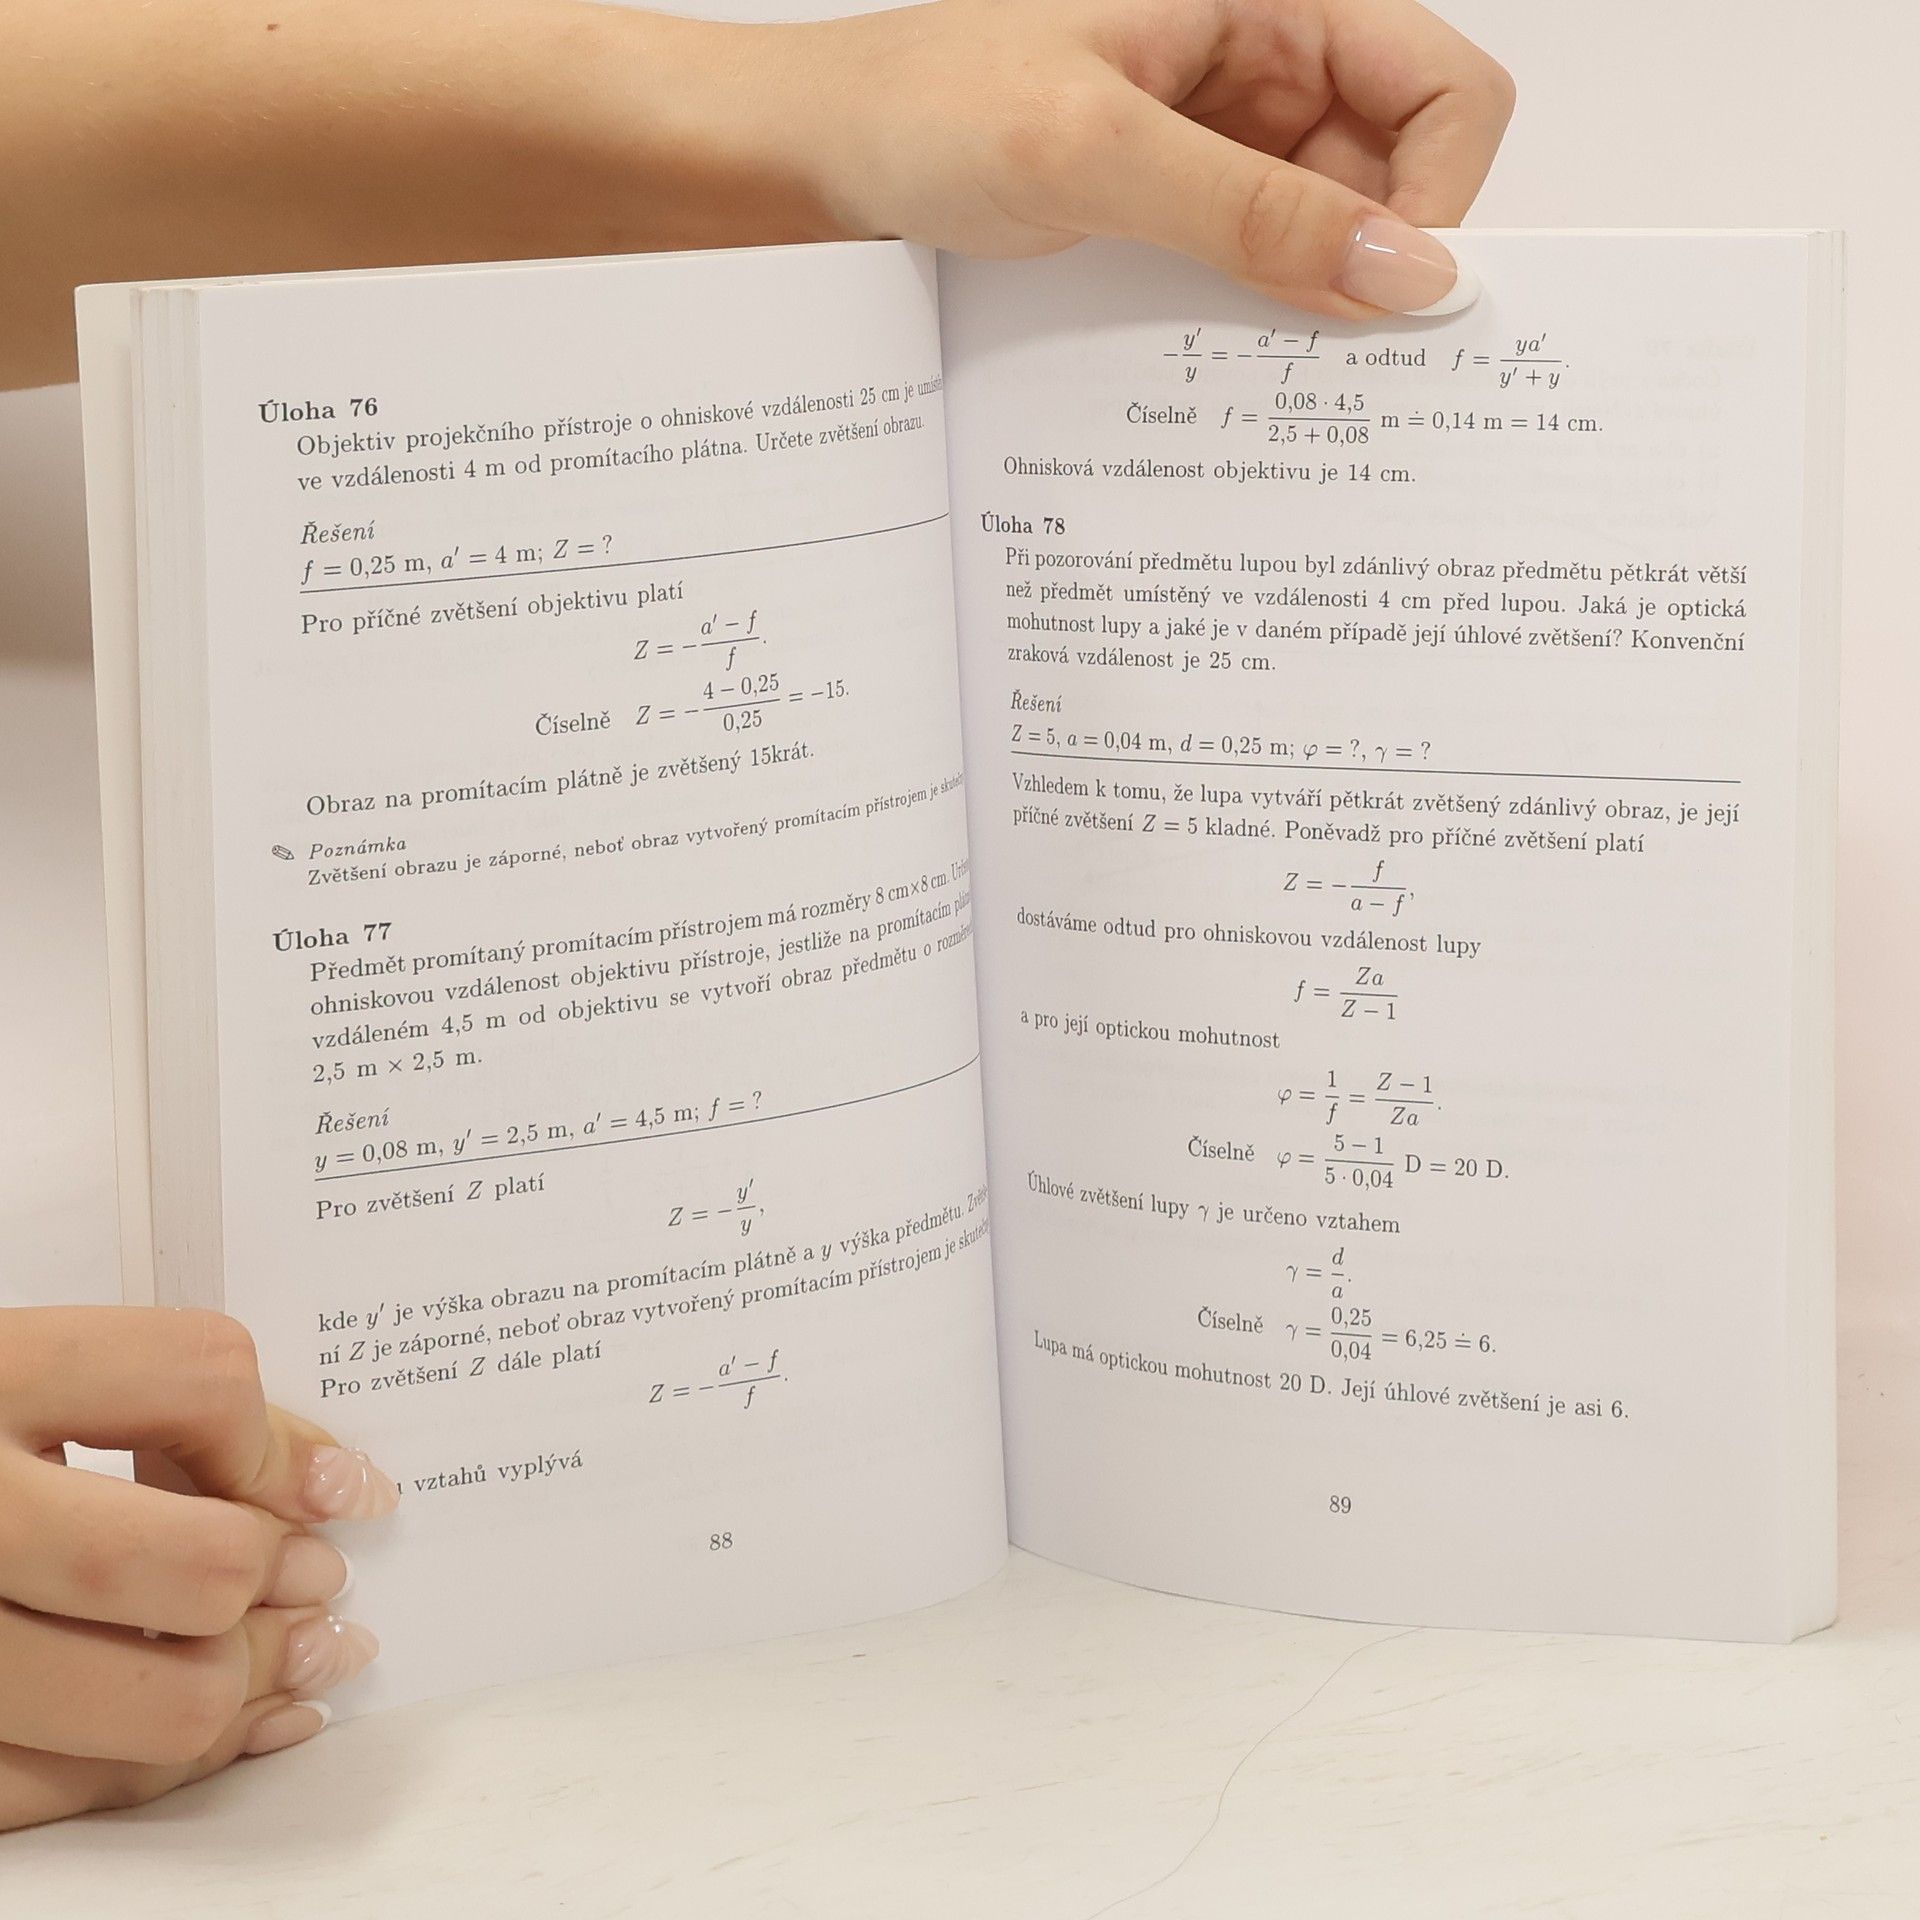 Úloha 76
Objektiv projekčního přístroje o ohniskové vzdálenosti 25 cm je
ve vzdálenosti 4 m od promítacího plátna. Určete zvětšení obrazu.
Řešení
f = 0,25 m, a′ = 4 m; Z = ?
Pro příčné zvětšení objektivu platí
Z = −(a′ − f)/f.
Číselně Z = −(4 − 0,25)/0,25 = −15.
Obraz na promítacím plátně je zvětšený 15krát.
✎ Poznámka
Zvětšení obrazu je záporné, neboť obraz vytvořený promítacím přístrojem je
Úloha 77
Předmět promítaný promítacím přístrojem má rozměry 8 cm×8 cm.
ohniskovou vzdálenost objektivu přístroje, jestliže na promítacím
vzdáleném 4,5 m od objektivu se vytvoří obraz předmětu o
2,5 m × 2,5 m.
Řešení
y = 0,08 m, y′ = 2,5 m, a′ = 4,5 m; f = ?
Pro zvětšení Z platí
Z = −y′/y,
kde y′ je výška obrazu na promítacím plátně a y výška předmětu.
ní Z je záporné, neboť obraz vytvořený promítacím přístrojem je
Pro zvětšení Z dále platí
Z = −(a′ − f)/f.
vztahů vyplývá
88
−y′/y = −(a′ − f)/f a odtud f = ya′/(y′ + y).
Číselně f = (0,08 · 4,5)/(2,5 + 0,08) m ≐ 0,14 m = 14 cm.
Ohnisková vzdálenost objektivu je 14 cm.
Úloha 78
Při pozorování předmětu lupou byl zdánlivý obraz předmětu pětkrát větší
než předmět umístěný ve vzdálenosti 4 cm před lupou. Jaká je optická
mohutnost lupy a jaké je v daném případě její úhlové zvětšení? Konvenční
zraková vzdálenost je 25 cm.
Řešení
Z = 5, a = 0,04 m, d = 0,25 m; φ = ?, γ = ?
Vzhledem k tomu, že lupa vytváří pětkrát zvětšený zdánlivý obraz, je její
příčné zvětšení Z = 5 kladné. Poněvadž pro příčné zvětšení platí
Z = −f/(a − f),
dostáváme odtud pro ohniskovou vzdálenost lupy
f = Za/(Z − 1)
a pro její optickou mohutnost
φ = 1/f = (Z − 1)/Za.
Číselně φ = (5 − 1)/(5 · 0,04) D = 20 D.
Úhlové zvětšení lupy γ je určeno vztahem
γ = d/a.
Číselně γ = 0,25/0,04 = 6,25 ≐ 6.
Lupa má optickou mohutnost 20 D. Její úhlové zvětšení je asi 6.
89